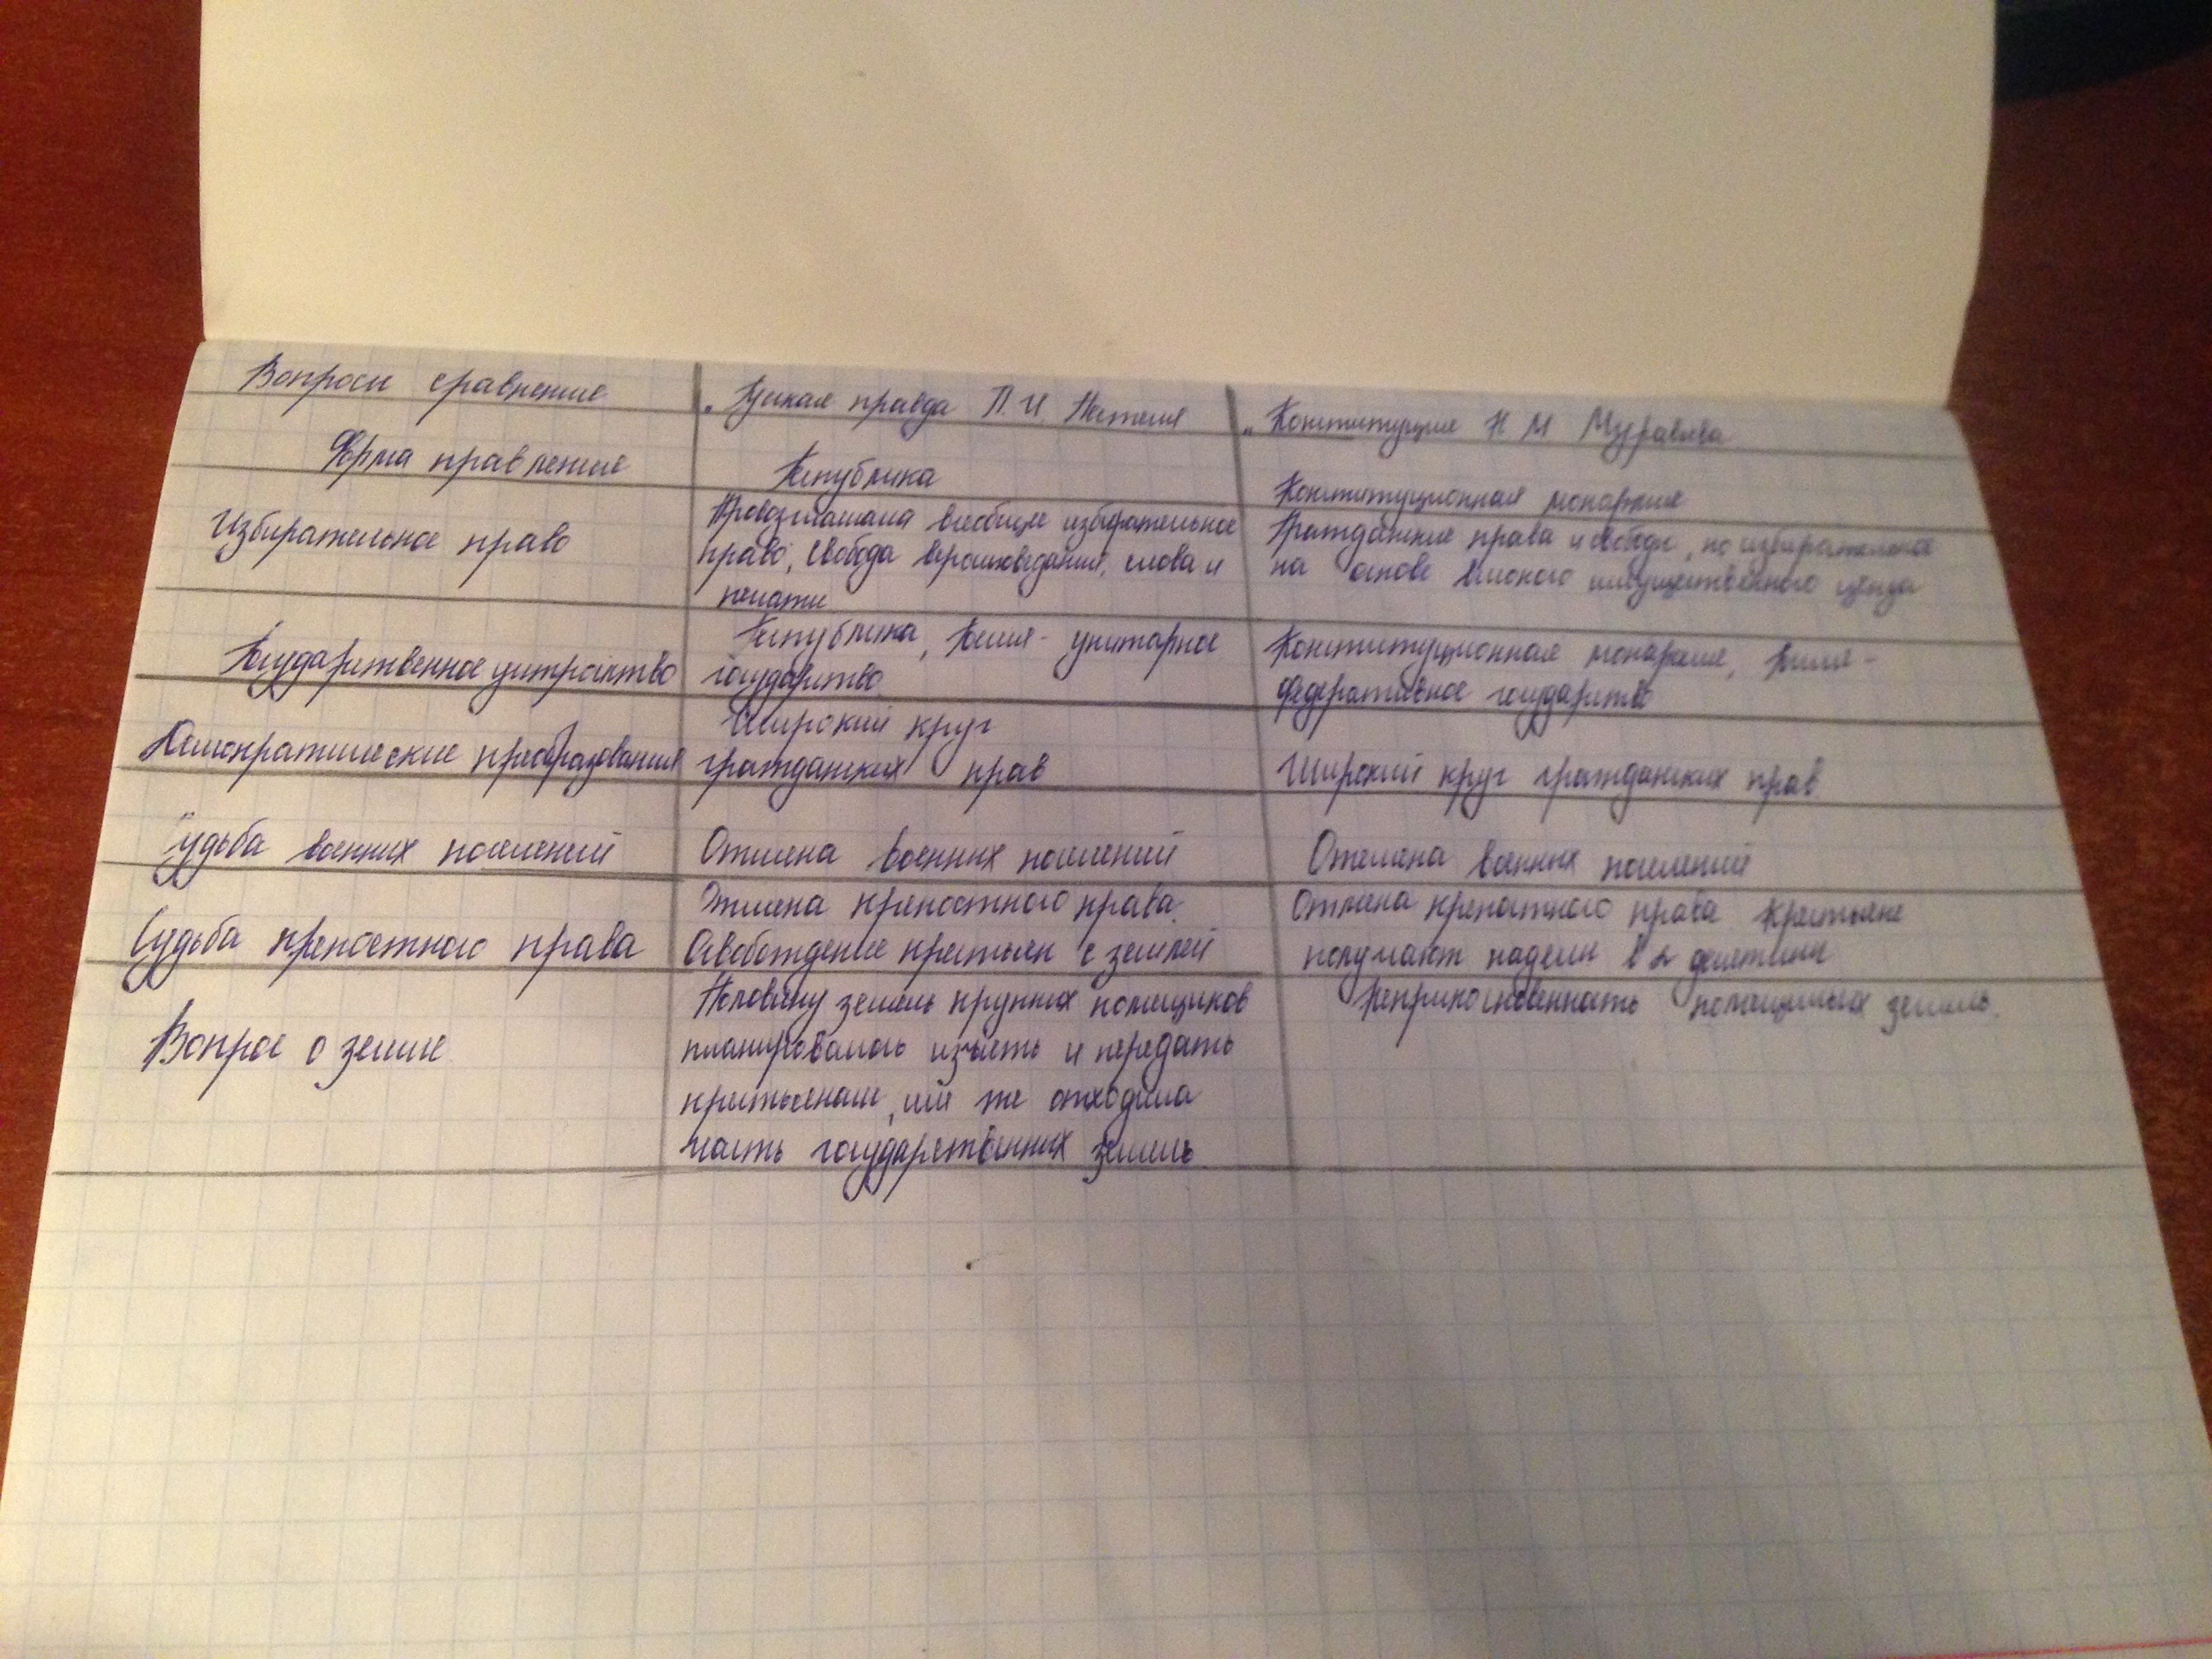 Вопросы сравнение
„ Руская правда П.И. Пестеля
„ Конституция Н М Муравьева
Форма правление
Республика
Конституционная монархия
Избирательное право
Провозглашала всеобщее избирательное
право, свобода вероисповедания, слова и
печати
Гражданские права и свободы, но избирательное
на основе высокого имущественного ценза
Государственное устройство
Республика, Россия - унитарное
государство
Конституционная монархия, Россия -
федеративное государство
Демократические преобразования
Широкий круг
гражданских прав
Широкий круг гражданских прав
Судьба военных поселений
Отмена военных поселений
Отмена военных поселений
Судьба крепостного права
Отмена крепостного права.
Освобождение крестьян с землей
Отмена крепостного права Крестьяне
получают наделы в 2 десятины
Вопрос о земле
Половину земель крупных помещиков
планировалось изъять и передать
крестьянам, им же отходила
часть государственных земель
Неприкосновенность помещичьих земель.